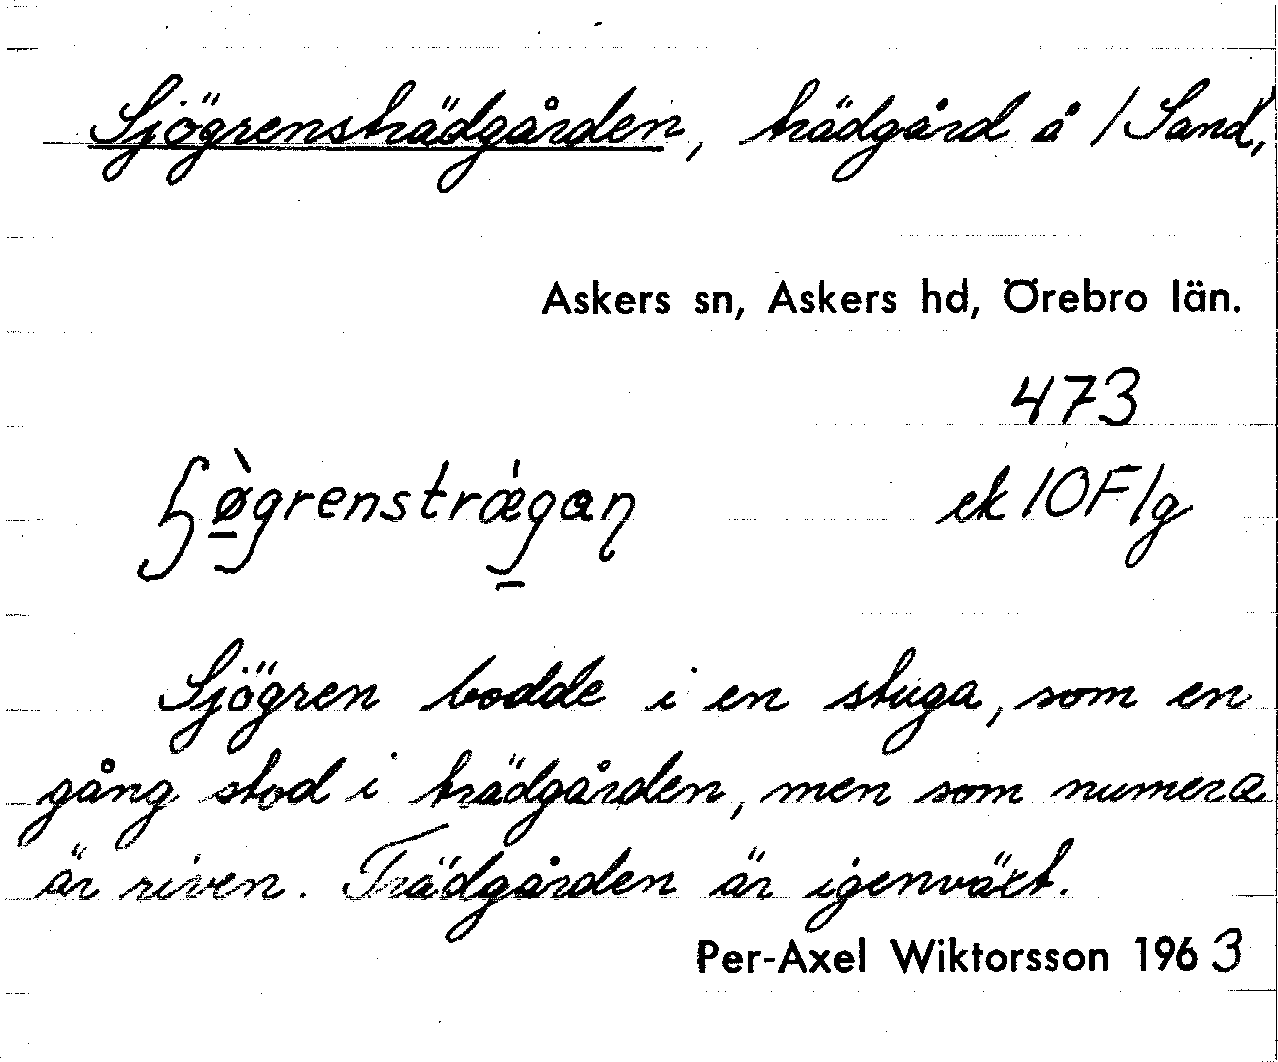 Sjögrensträdgården, trädgård å /Sand,
Askers sn, Askers hd, Örebro län.
473
ek 10F1g
Sjögren bodde i en stuga, som en
gång stod i trädgården, men som numera
är riven. Trädgården är igenväxt.
Per-Axel Wiktorsson 1963